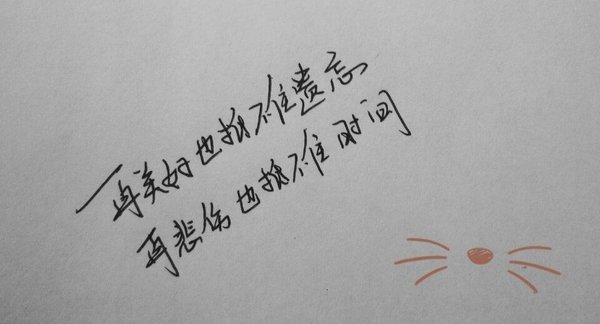 再美好也抵不住遗忘
再悲伤也抵不住时间